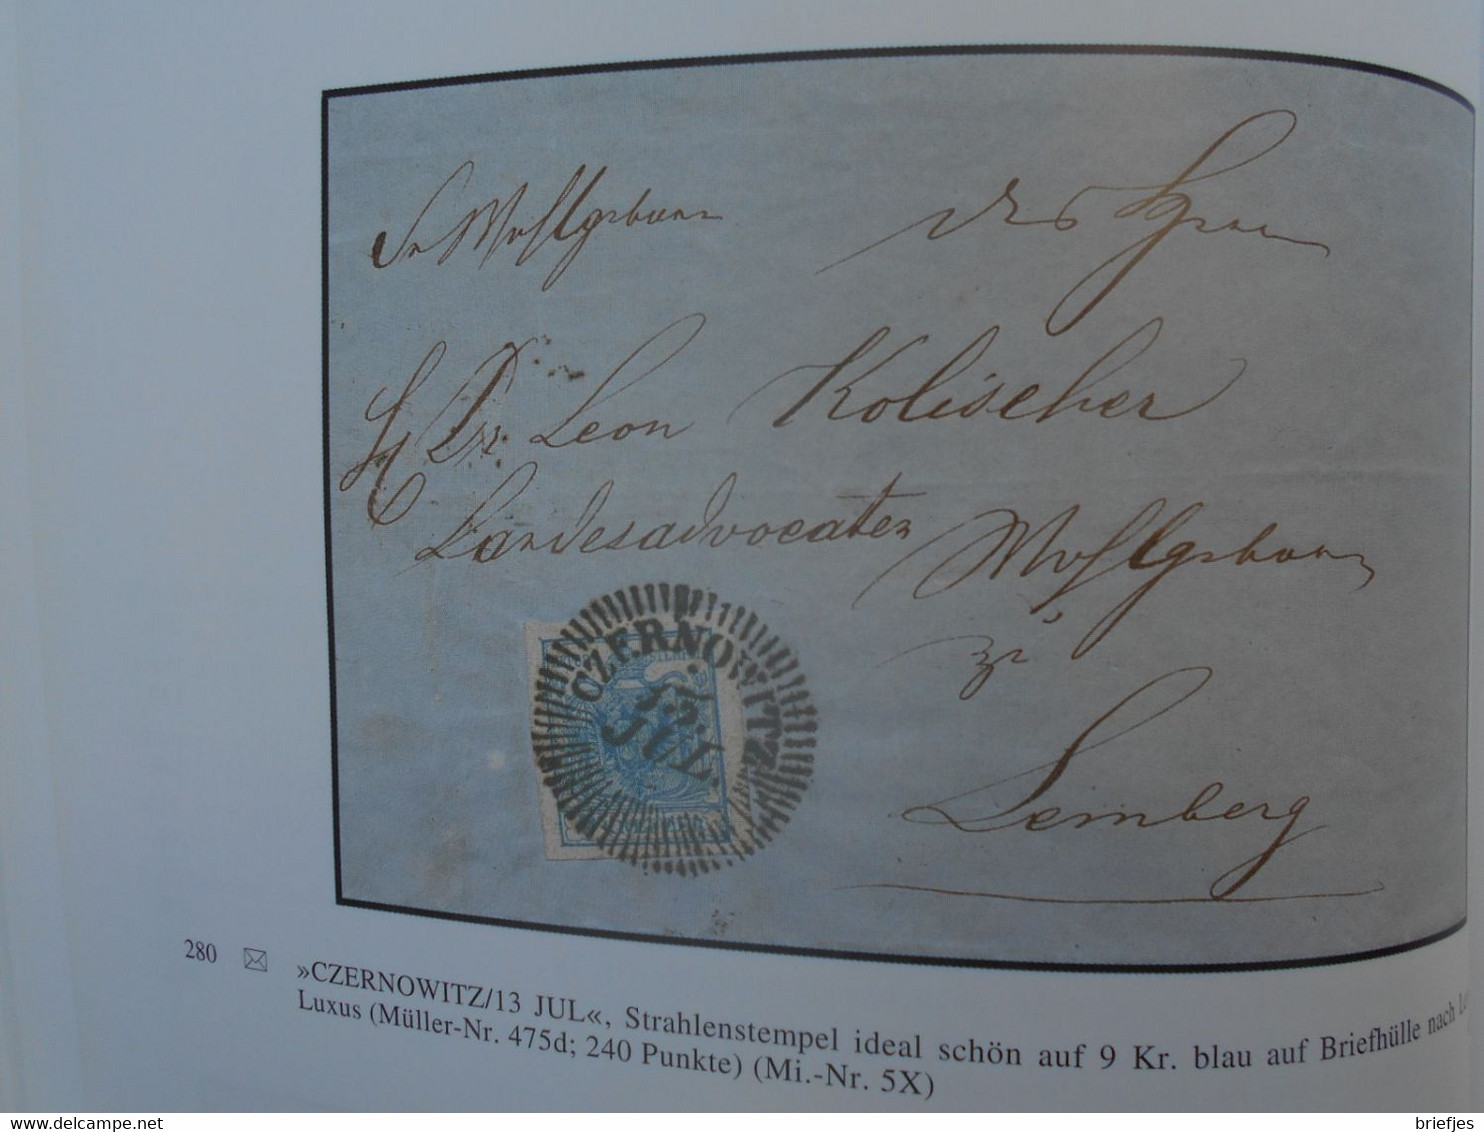 Sr Wohlgeboren des Herrn
H Dr. Leon Kolischer
Landesadvocaten Wohlgeboren
zu
Lemberg
CZERNOWITZ
13.
JUL.
280 »CZERNOWITZ/13 JUL«, Strahlenstempel ideal schön auf 9 Kr. blau auf Briefhülle nach
Luxus (Müller-Nr. 475d; 240 Punkte) (Mi.-Nr. 5X)
delcampe.net
briefjes